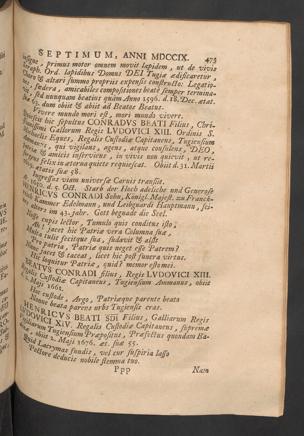 SEPTIMUM, ANNI MDCCIX. 473
insigne, primus motor omnem movit lapidem, ut de vivis
Joseph. Ord. lapidibus Domus DEI Tugiæ ædificaretur,
Choro & altari summo propriis expensis constructo. Legatio-
nes, fœdera, amicabiles compositiones beatè semper termina-
vit, sed nunquam beatius quàm Anno 1596. d. 18. Dec. ætat.
63. dum obiit & abiit ad Beatos Beatus.
Vivere mundo mori est, mori mundo vivere.
hic sepultus CONRADVS BEATI Filius, Chri-
stianissimi Galliarum Regis LVDOVICI XIII. Ordinis S.
Michaelis Eques, Regalis Custodiæ Capitaneus, Tugiensium
qui vigilans, agens, atque consulens, DEO,
& amicis inserviens, in vivis non quievit, ut re-
felix in æterna quiete requiescat. Obiit d. 31. Martii
ætatis suæ 58.
Ingressus viam universæ Carnis transiit.
d. 5. Oct. Starb der Hoch adeliche und Generose
HENRICVS CONRADI Sohn, Königl. Majest. zu Franck-
Kammer Edelmann, und Leibguardi Hauptmann, sei-
nes alters im 43. jahr. Gott begnade die Seel.
Nosse cupis lector, Tumulo quis conditus isto,
Ah! jacet hic Patriæ vera Columna suæ,
Pro tulit fecitque sua, sudavit & alsit
Pro patria, Patriæ quis neget esse Patrem?
jacet & taceat, licet hic post funera virtus.
Hic loquitur Patriæ, quid? memor estomei.
BEATVS CONRADI filius, Regis LVDOVICI XIII.
Custodiæ Capitaneus, Tugiensium Ammanus, obiit
Maji 1661.
Hic custode, Argo, Patriæque parente beata
Nonne beata parens urbs Tugiensis eras.
HENRICVS BEATI SDI Filius, Galliarum Regis
LVDOVICI XIV. Regalis Custodiæ Capitaneus, supremæ
Tugiensium Præpositus, Præfectus quondam
obiit 2. Maji 1676. æt. suæ 55.
Quid Lacrymas fundis, vel cur suspiria lasso
Pectore deducis nobile stemma tuo.
Ppp Nam